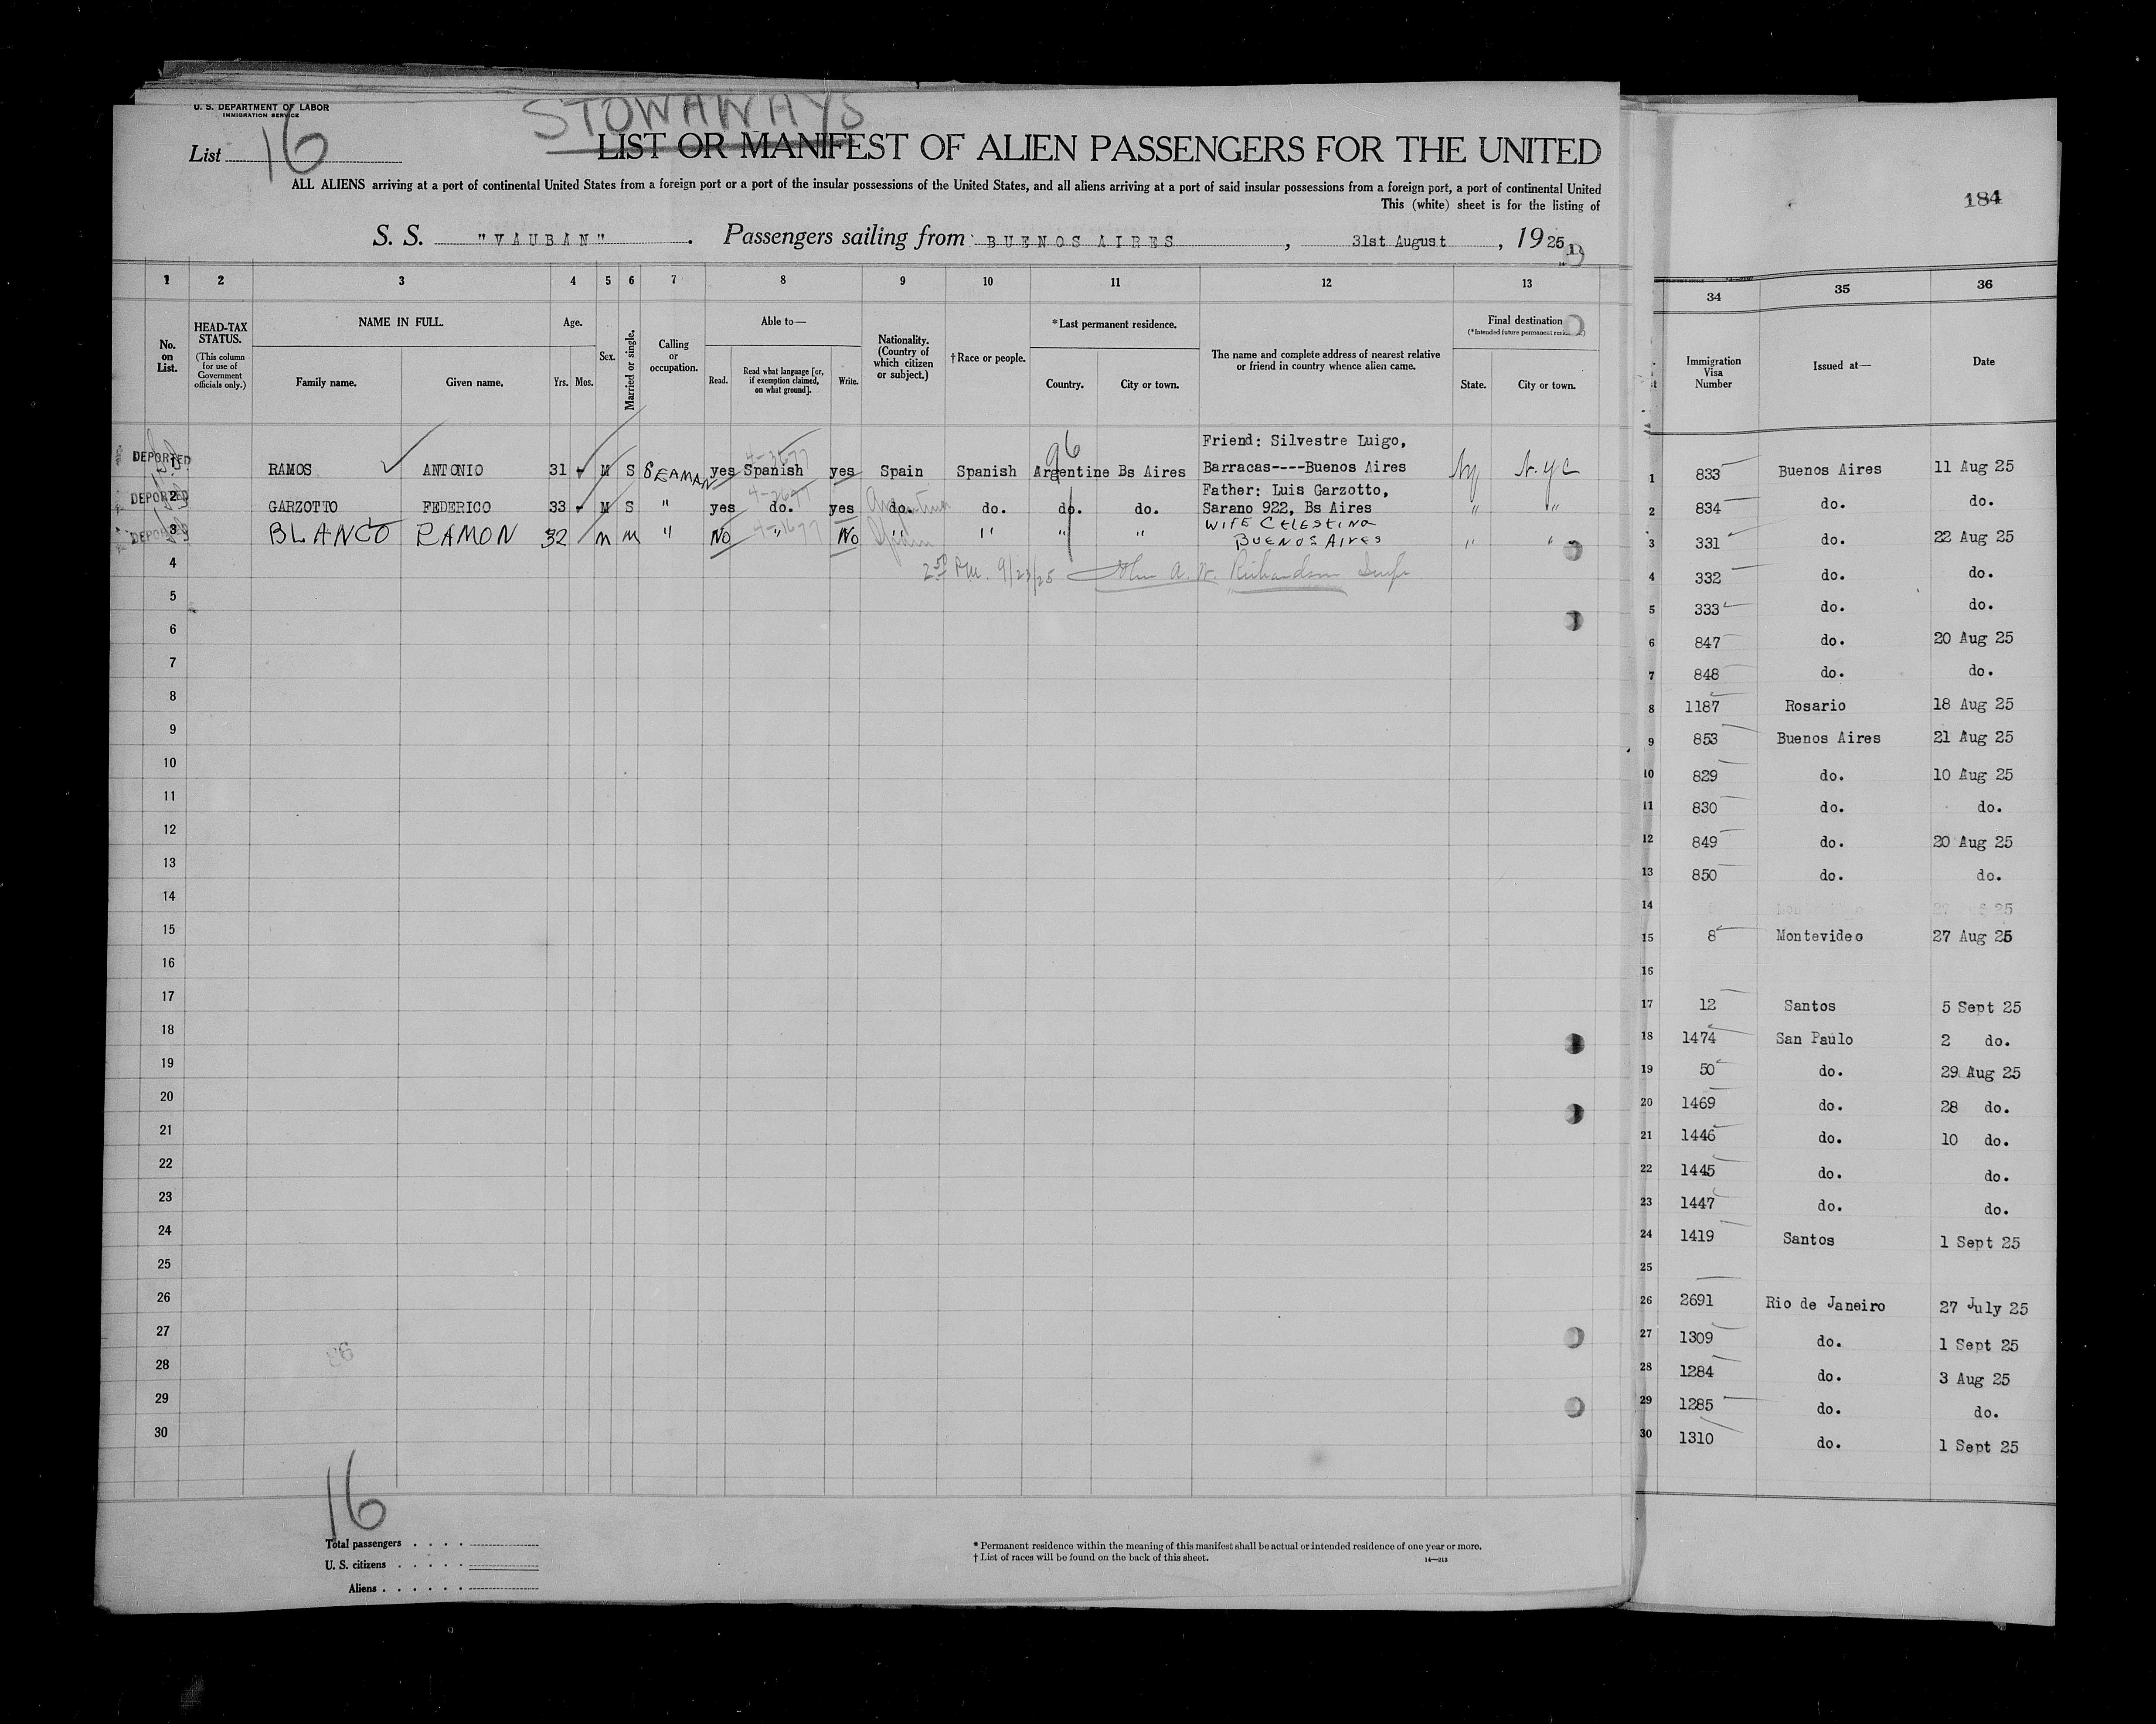 U. S. DEPARTMENT OF LABOR
IMMIGRATION SERVICE
STOWAWAYS
List 16
LIST OR MANIFEST OF ALIEN PASSENGERS FOR THE UNITED
ALL ALIENS arriving at a port of continental United States from a foreign port or a port of the insular possessions of the United States, and all aliens arriving at a port of said insular possessions from a foreign port, a port of continental United
This (white) sheet is for the listing of
S. S. "VAUBAN" . Passengers sailing from BUENOS AIRES , 31st August , 1925
1 2 3 4 5 6 7 8 9 10 11 12 13
No. on List.
HEAD-TAX STATUS.
(This column for use of Government officials only.)
NAME IN FULL.
Family name. Given name.
Age.
Yrs. Mos.
Sex.
Married or single.
Calling or occupation.
Able to—
Read. Read what language [or, if exemption claimed, on what ground]. Write.
Nationality. (Country of which citizen or subject.)
†Race or people.
*Last permanent residence.
Country. City or town.
The name and complete address of nearest relative or friend in country whence alien came.
Final destination
State. City or town.
96
Friend: Silvestre Luigo,
DEPORTED RAMOS ANTONIO 31 M S SEAMAN yes Spanish yes Spain Spanish Argentine Bs Aires Barracas----Buenos Aires NY N.Y.C
Father: Luis Garzotto,
DEPORTED 2 GARZOTTO FEDERICO 33 M S " yes do. yes do. Argentina do. do. do. Sarano 922, Bs Aires " "
WIFE CELESTINA
DEPORTED 3 BLANCO RAMON 32 M M " No " No " Spain " " " BUENOS AIRES " "
4 2 50 P.M. 9/23/25 John A. W. Richardson Insp
5
6
7
8
9
10
11
12
13
14
15
16
17
18
19
20
21
22
23
24
25
26
27
28
29
30
16
Total passengers
U. S. citizens
Aliens
* Permanent residence within the meaning of this manifest shall be actual or intended residence of one year or more.
† List of races will be found on the back of this sheet.
14—213
184
34 35 36
Immigration Visa Number
Issued at—
Date
1 833 Buenos Aires 11 Aug 25
2 834 do. do.
3 331 do. 22 Aug 25
4 332 do. do.
5 333 do. do.
6 847 do. 20 Aug 25
7 848 do. do.
8 1187 Rosario 18 Aug 25
9 853 Buenos Aires 21 Aug 25
10 829 do. 10 Aug 25
11 830 do. do.
12 849 do. 20 Aug 25
13 850 do. do.
14
15 8 Montevideo 27 Aug 25
16
17 12 Santos 5 Sept 25
18 1474 San Paulo 2 do.
19 50 do. 29 Aug 25
20 1469 do. 28 do.
21 1446 do. 10 do.
22 1445 do. do.
23 1447 do. do.
24 1419 Santos 1 Sept 25
25
26 2691 Rio de Janeiro 27 July 25
27 1309 do. 1 Sept 25
28 1284 do. 3 Aug 25
29 1285 do. do.
30 1310 do. 1 Sept 25